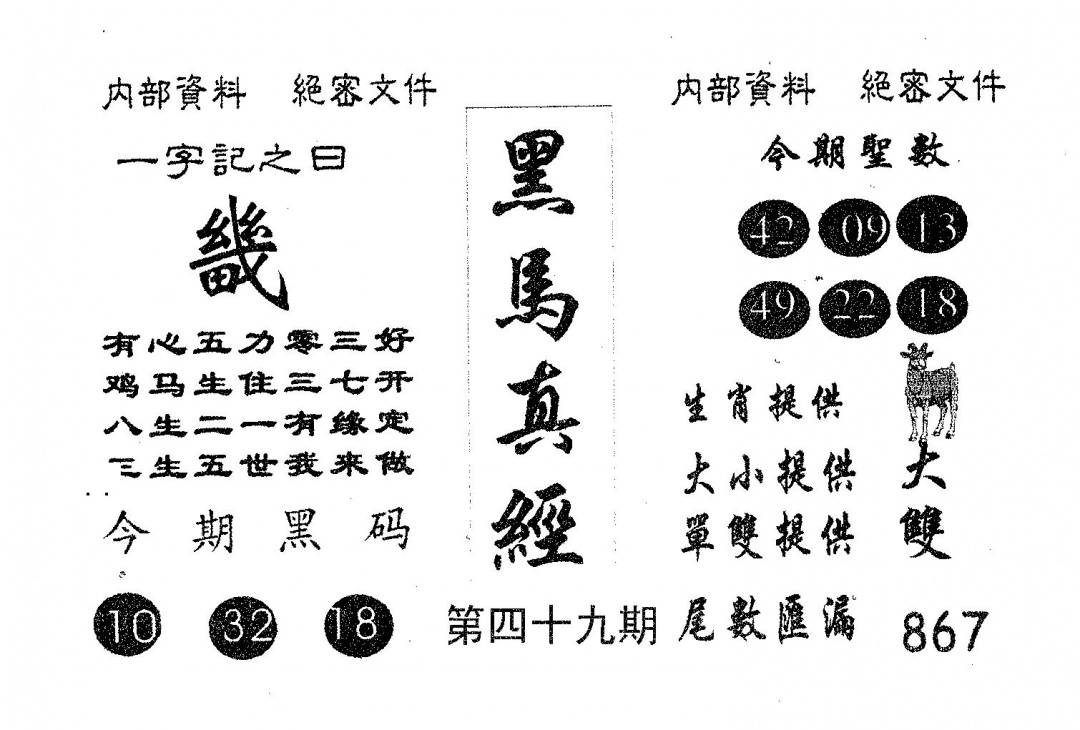 内部資料 絕審文件
一字記之曰
畿
有心五力零三好
鸡马生住三七开
八生二一有缘定
三生五世我来做
今期黑码
10 32 18
黑馬真經
第四十九期
内部資料 絕審文件
今期聖數
42 09 13
49 22 18
生肖提供
大小提供 大
單雙提供 雙
尾數匯漏 867